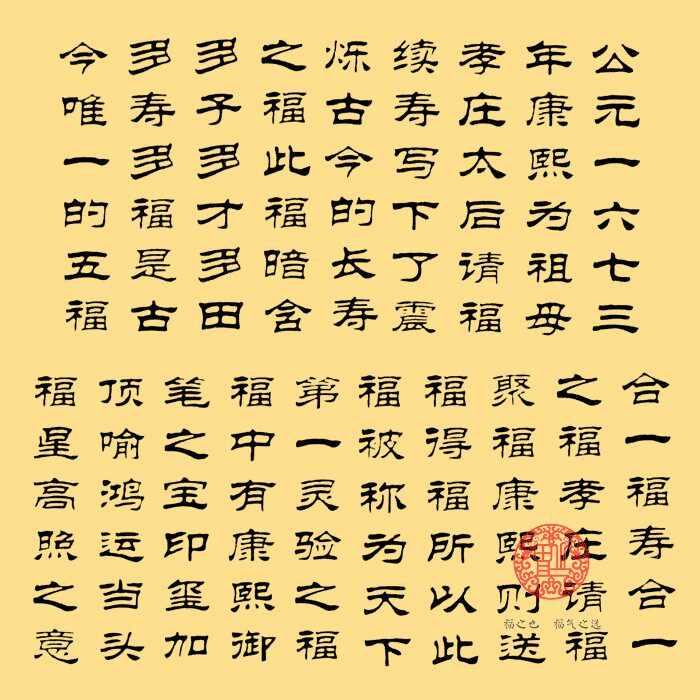 公元一六七三
年康熙为祖母
孝庄太后请福
续寿写下了震
烁古今的长寿
之福此福暗含
多子多才多田
多寿多福是古
今唯一的五福
合一福寿合一
之福孝庄请福
聚福康熙则送
福得福所以此
福被称为天下
第一灵验之福
福中有康熙御
笔之宝印玺加
顶喻鸿运当头
福星高照之意
福之也 福气之送